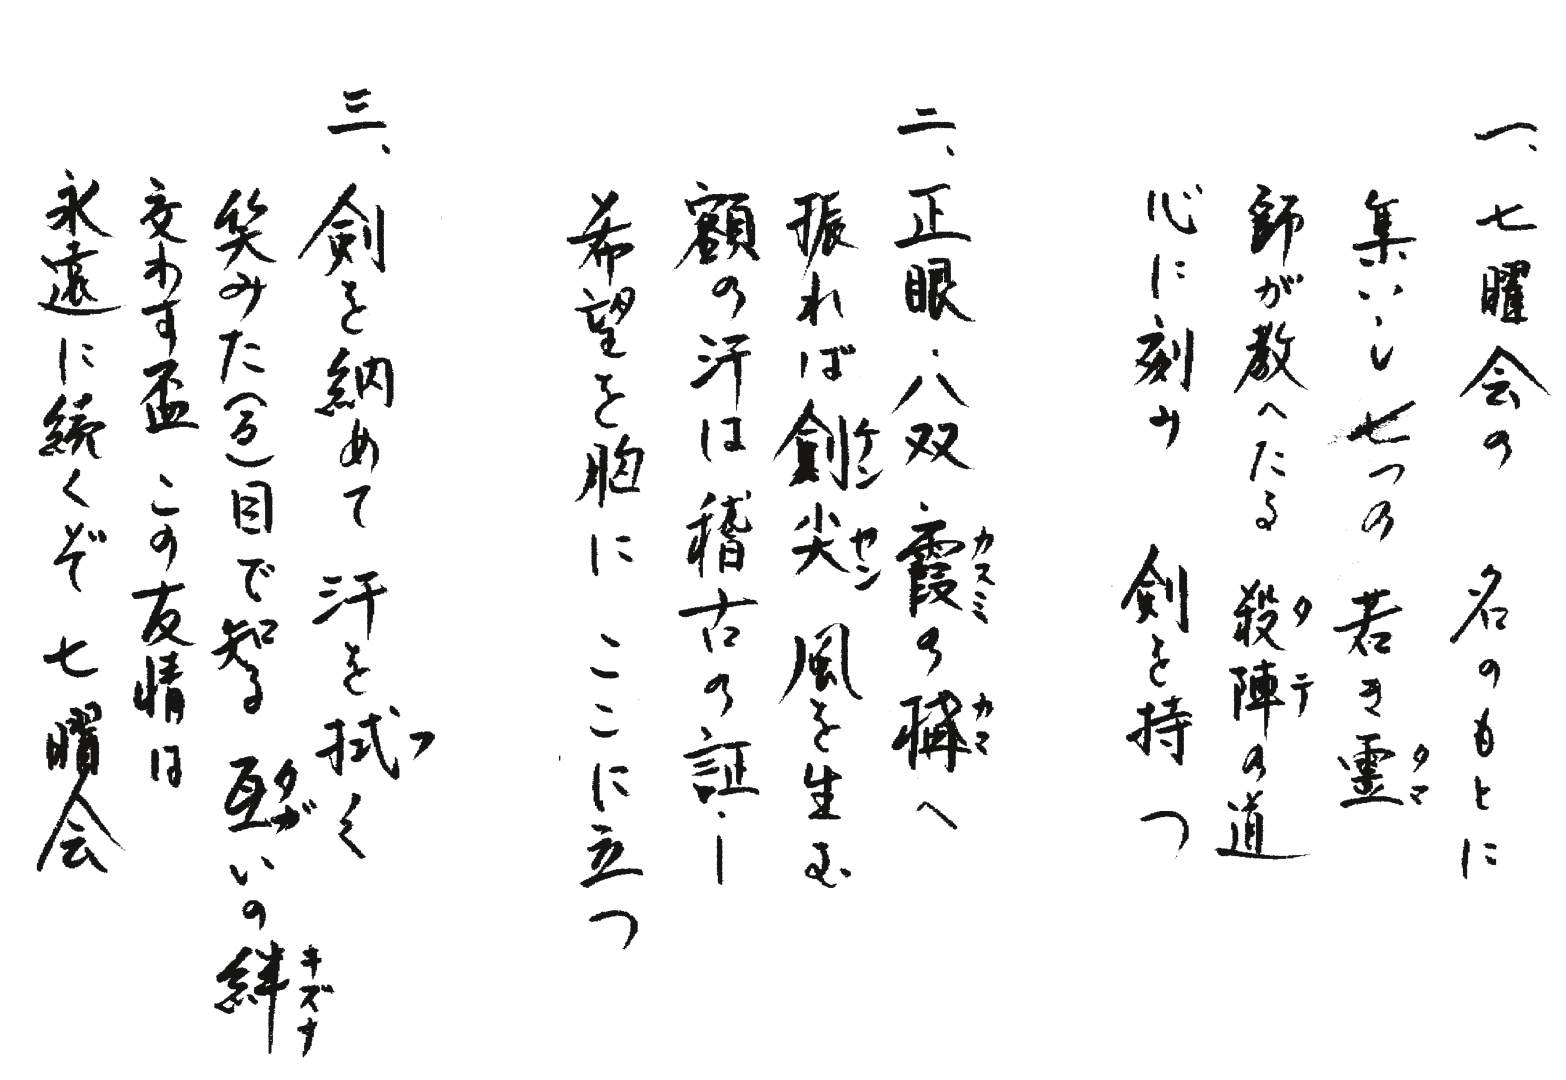 一、七曜会の 名のもとに
集いし 七つの 若き霊タマ
師が教へたる 殺陣タテの道
心に刻み 剣を持つ
二、正眼・八双 霞カスミの構カマへ
振れば劍尖ケンセン 風を生む
額の汗は稽古の証ー
希望を胸に ここに立つ
三、剣を納めて 汗を拭フく
笑みた(る)目で知る 互タガいの絆キズナ
交わす盃 この友情は
永遠に続くぞ 七曜会